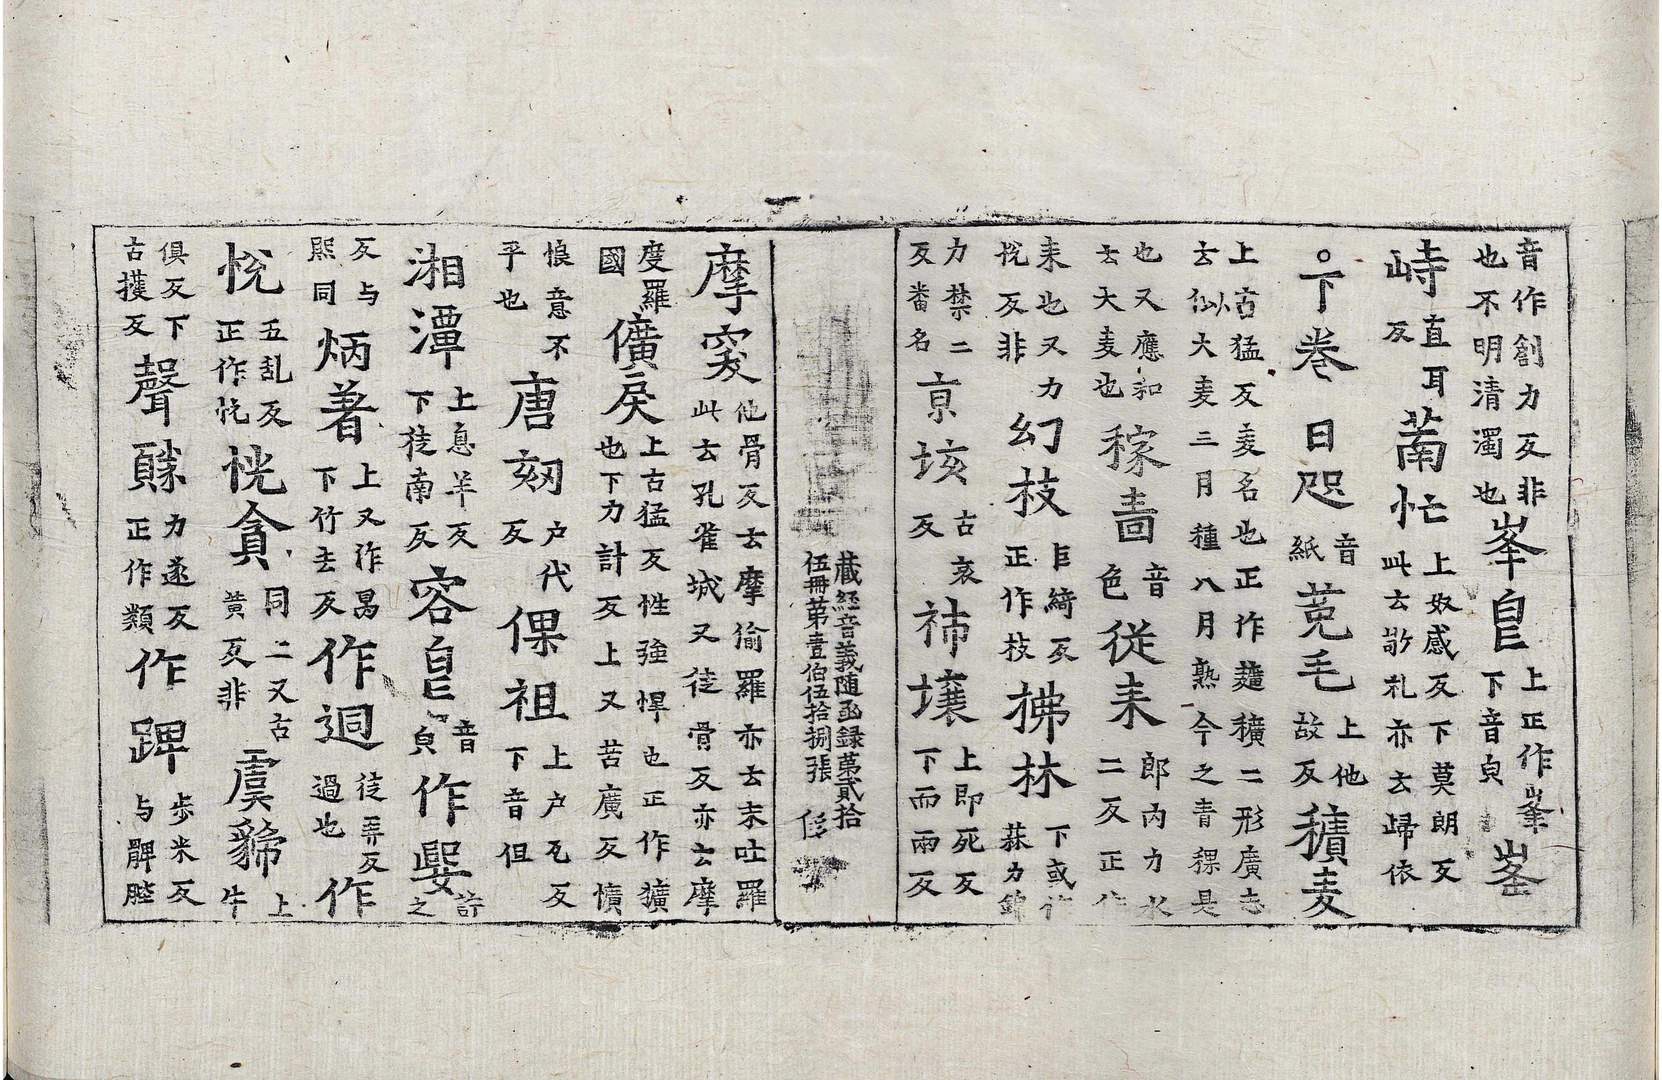 音作創力反非也不明清濁也峯㿝上正作峯下音皃峚
峙直耳反萳忙上奴感反下莫朗反此云敬礼亦云歸依
下卷 日咫音紙菟毛上他故反𥢶麦
上古猛反麦名也正作䵃穬二形廣志云似大麦三月種八月熟今之青稞是
也又應和云大麦也稼啬音色從耒郎内力水二反正作
耒也又力悅反非幻枝巨綺反正作枝拂林下或作菻力錦
力禁二反畨名京垓古哀反柿壤上即死反下而兩反
藏經音義随函録苐貳拾
伍冊苐壹伯伍拾捌張
摩窔他骨反云摩偷羅亦云末吐羅此云孔雀城又徒骨反亦云摩
度羅國儣戾上古猛反性強悍也正作獷也下力計反上又苦廣反懭
悢意不平也唐㓞户代反倮祖上户瓦反下音但
湘潭上息羊反下徒南反容㿝音皃作㜸許之
反与煕同炳著上又作昺下竹去反作迵徒弄反過也作
恱五乱反正作忨恍貪同二又古黄反非虞䝙上牛
俱反下古擭反聲𧷤力遂反正作類作踋步米反与髀䏶